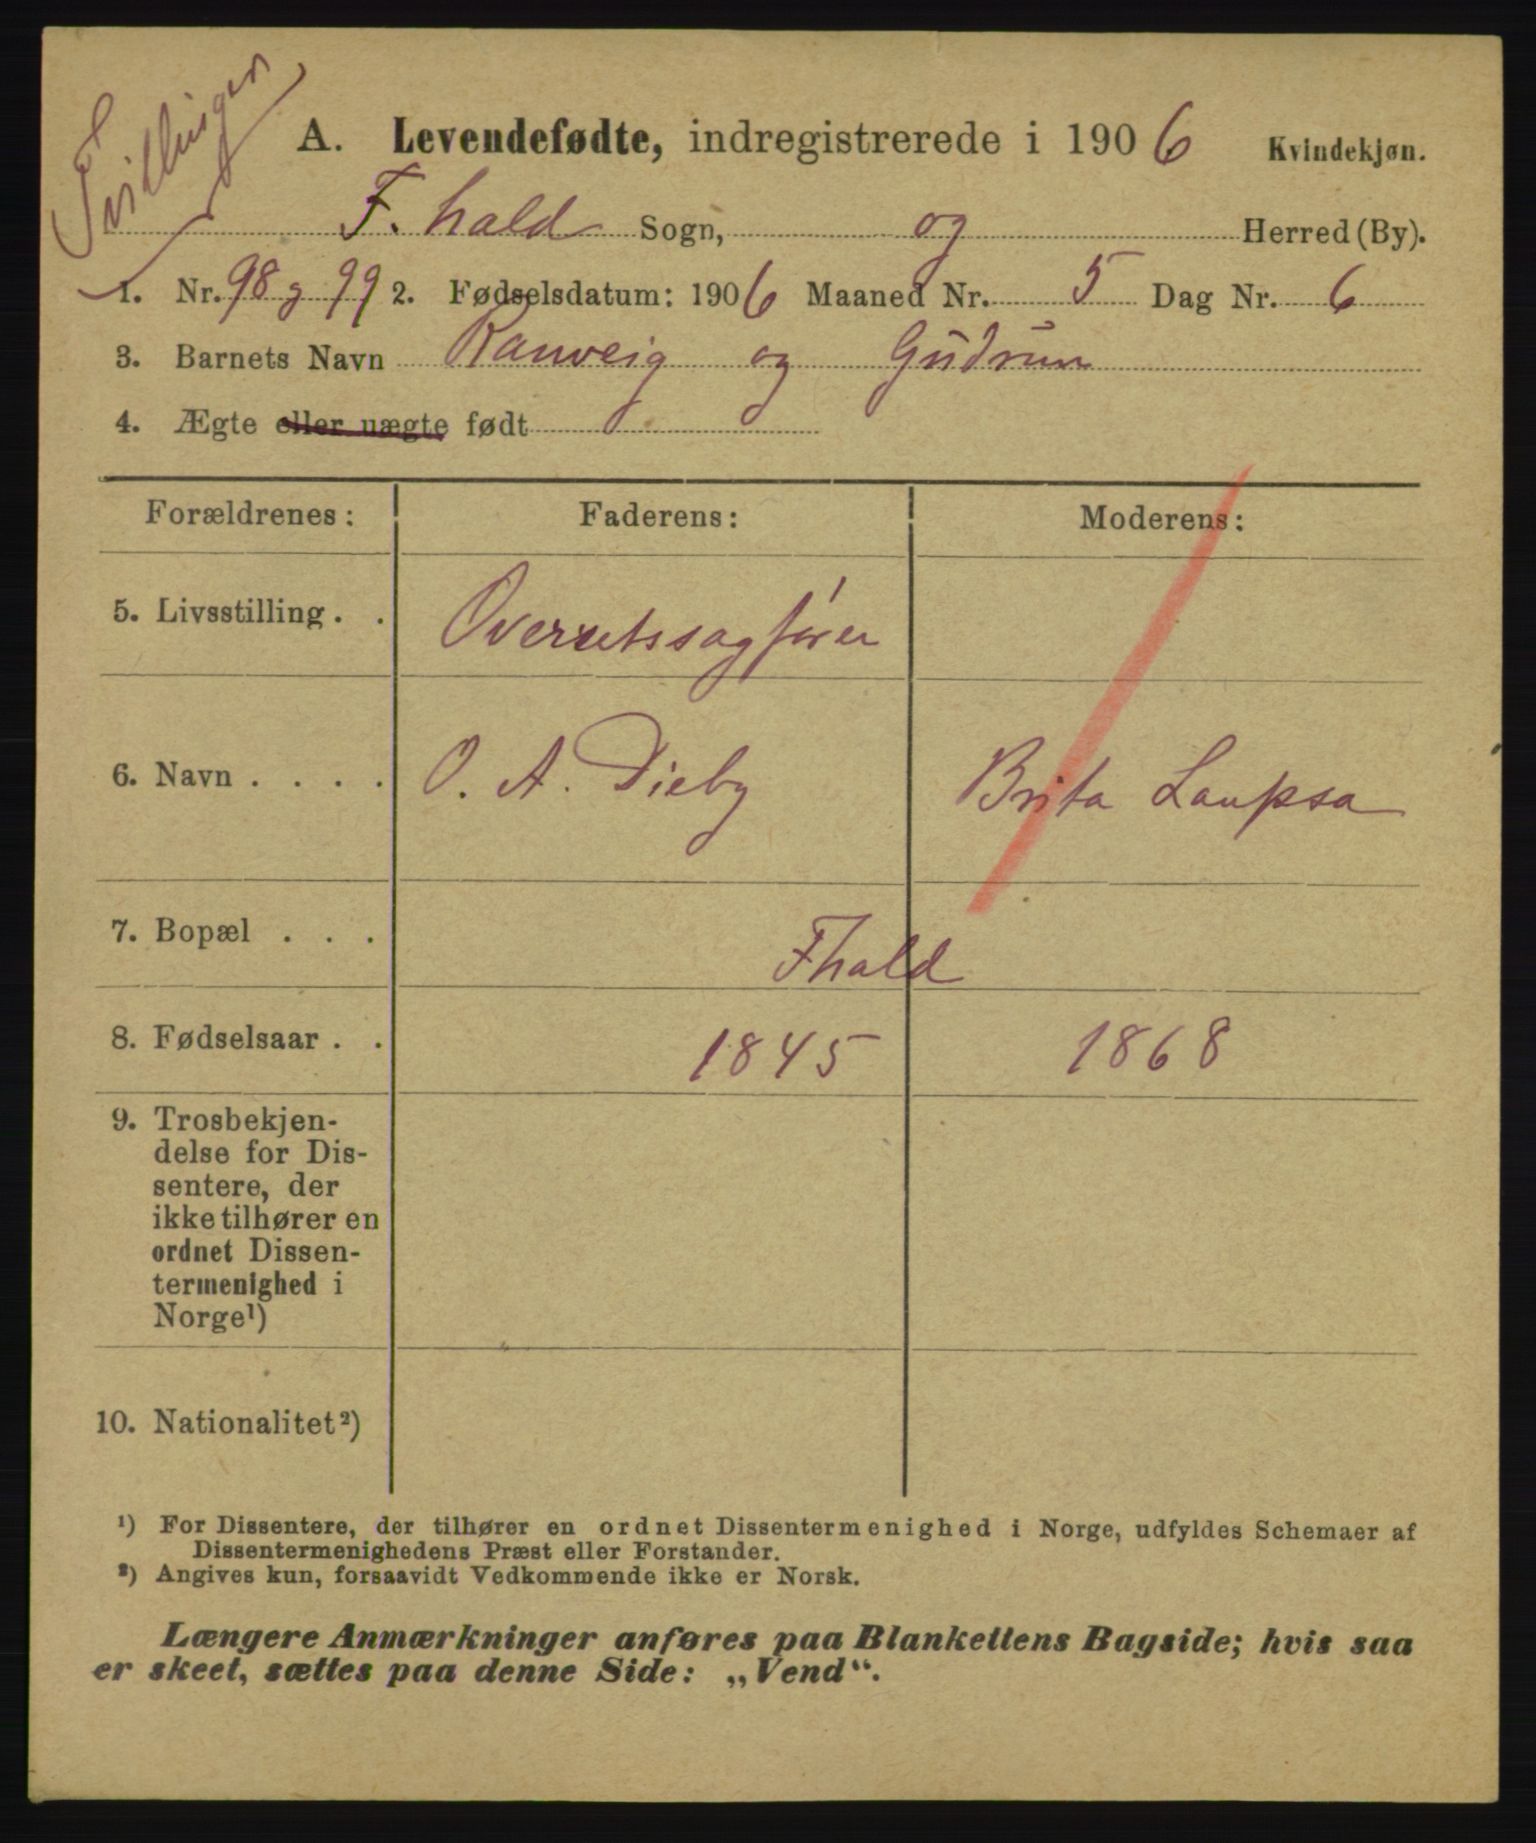 Tvillinger
A. Levendefødte, indregistrerede i 1906 Kvindekjøn.
F.hald Sogn, og Herred (By).
1. Nr. 98 og 99 2. Fødselsdatum: 1906 Maaned Nr. 5 Dag Nr. 6
3. Barnets Navn Ranveig og Gudrun
4. Ægte eller uægte født
Forældrenes: Faderens: Moderens:
5. Livsstilling . . Overretssagfører
6. Navn . . . . O. A. Dieby Brita Laupsa
7. Bopæl . . . Fhald
8. Fødselsaar . . 1845 1868
9. Trosbekjen-
delse for Dis-
sentere, der
ikke tilhører en
ordnet Dissen-
termenighed i
Norge¹)
10. Nationalitet²)
¹) For Dissentere, der tilhører en ordnet Dissentermenighed i Norge, udfyldes Schemaer af
Dissentermenighedens Præst eller Forstander.
²) Angives kun, forsaavidt Vedkommende ikke er Norsk.
Længere Anmærkninger anføres paa Blankettens Bagside; hvis saa
er skeet, sættes paa denne Side: „Vend“.